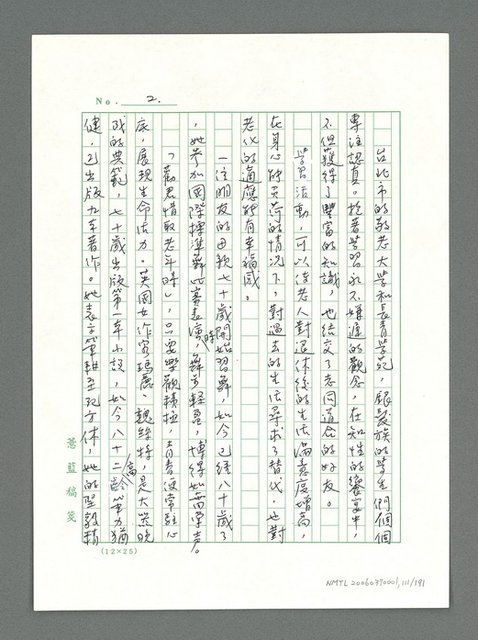 No. 2.
台北市的敬老大學和長青學苑，銀髮族的學生們個個
專注認真。抱著學習永不嫌遲的觀念，在知性的饗宴中，
不但獲得了豐富的知識，也結交了志同道合的好友。
學習活動，可以使老人對退休後的生活滿意度增高，
在身心能負荷的情況下，對過去的生活尋求了替代，也對
老化的適應能有幸福感。
一位朋友的母親七十歲開始習舞，如今已經八十歲了
，她參加國際標準舞比賽表演時，舞步輕盈，博得如雷掌聲。
「勸君惜取老年時」，只要樂觀積極，青春便常駐心
底，展現生命活力。英國女作家瑪麗、魏絲特，是大器晚
成的典範，七十歲出版第一本小說，如今八十二高齡，筆力猶
健，已出版九本著作。她表示筆耕至死方休，她的堅毅精
惹藍稿箋
(12×25)
NMTL20060390001, 111/191